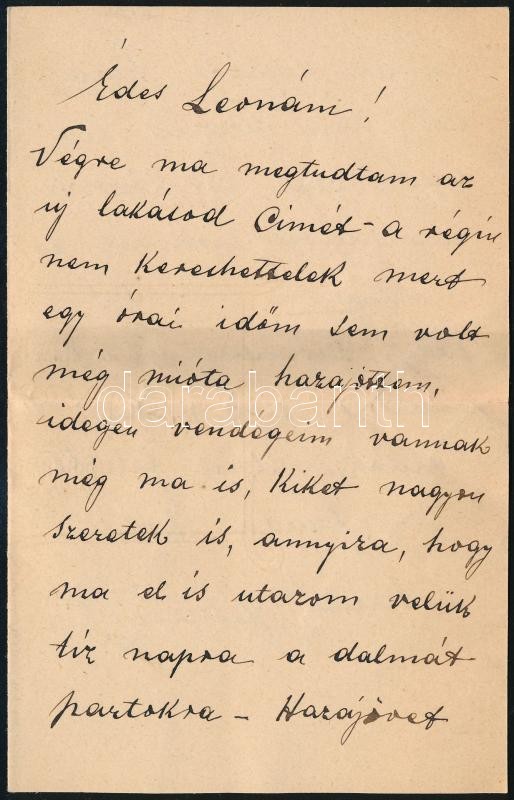 Édes Leonám!
Végre ma megtudtam az
új lakásod címét - a régin
nem kereshettelek mert
egy órai időm sem volt
még mióta hazajöttem,
darabanth
idegen vendégeim vannak
még ma is, kiket nagyon
szeretek is, annyira, hogy
ma el is utazom velük
tíz napra a dalmát
partokra - Hazajövet